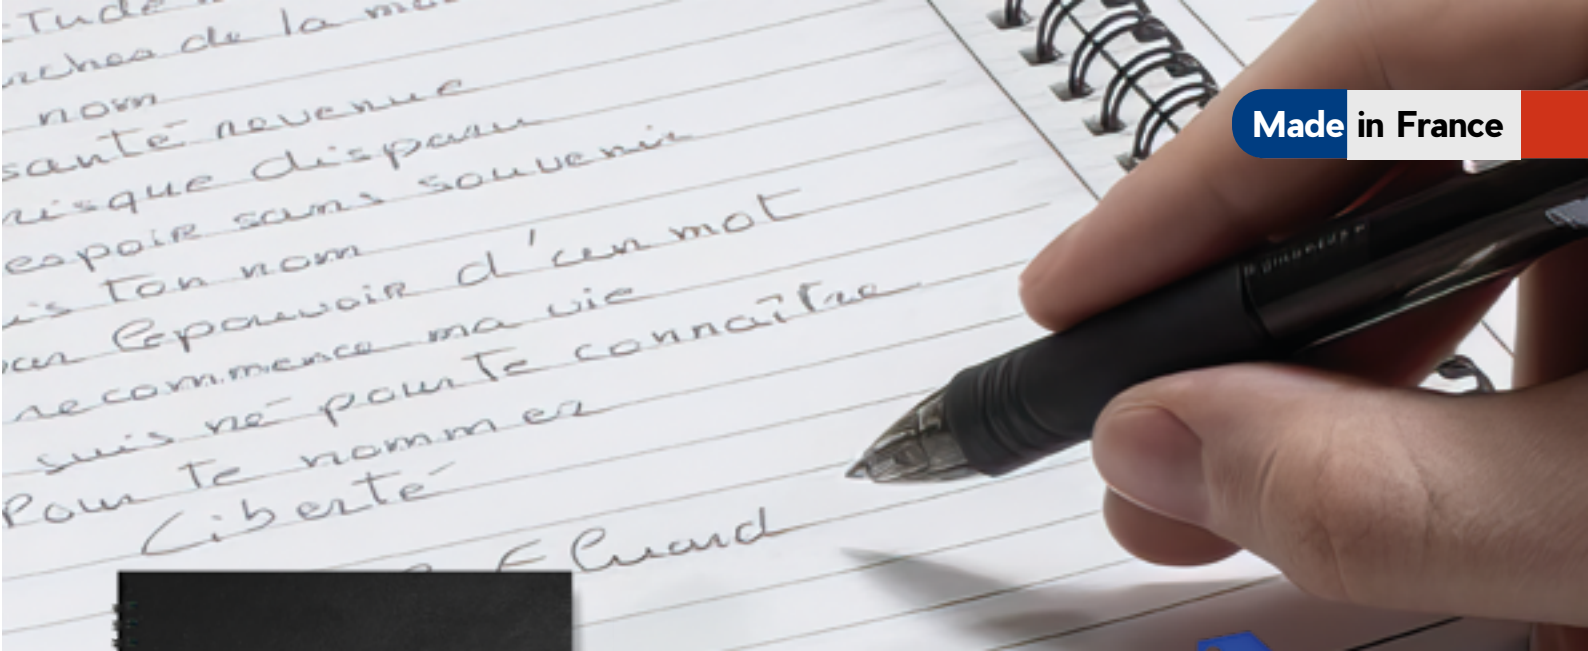 -Tude
rches de la
nom
santé revenue
risque disparu
espoir sans souvenir
is Ton nom
par le pouvoir d'un mot
recommence ma vie
suis né pour te connaître
Pour te nommer
Liberté
Eluard
Made in France